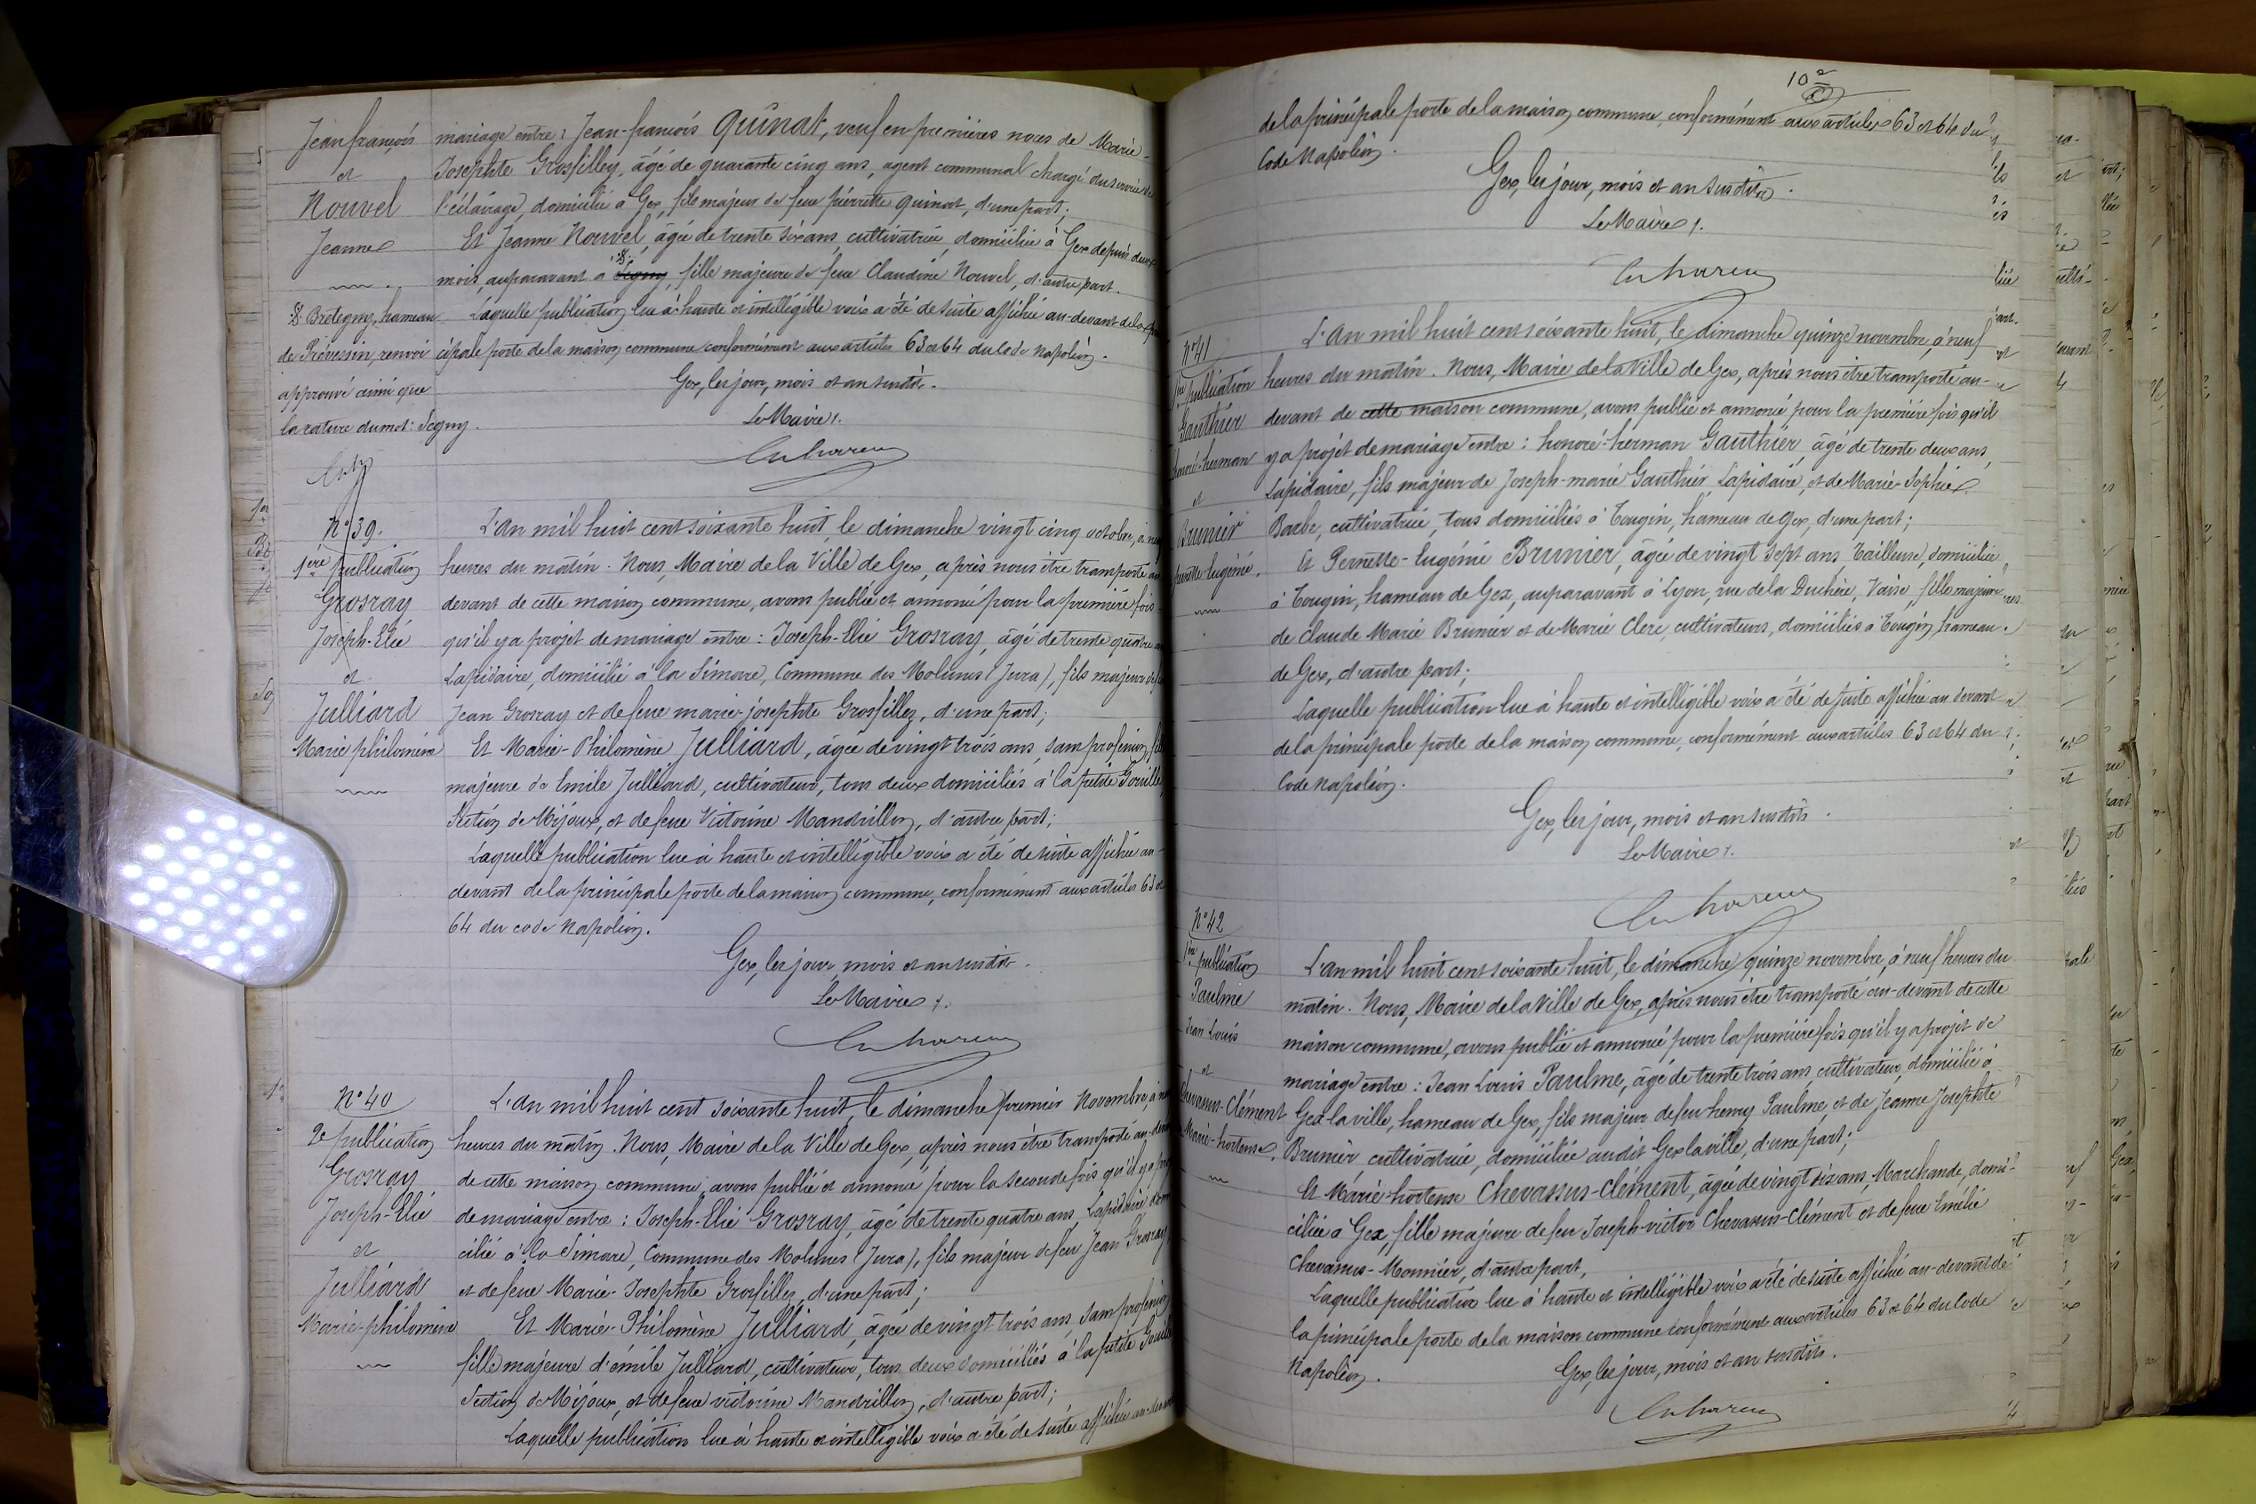 Jean françois
et
Nouvel
Jeanne
:8: Bretegny, hameau
de Prévessin, renvoi
approuvé ainsi que
la rature du mot: Segny.
mariage entre: Jean-françois Quinat, veuf en premières noces de Marie-
Josephte Grosfilley, âgé de quarante cinq ans, agent communal chargé du service de
l'éclairage, domicilié à Gex, fils majeur de feue pierrette Quinat, d'une part;
Et Jeanne Nouvel, âgée de trente six ans, cultivatrice, domiciliée à Gex depuis deux
mois, auparavant à :8: Segny, fille majeure de feue Claudine Nouvel, d'autre part.
Laquelle publication lue à haute et intelligible voix a été de suite affichée au-devant de la prin
cipale porte de la maison commune conformément aux articles 63 et 64 du Code Napoléon.
Gex, les jour, mois et an susdits.
Le Maire
N° 39.
1ère publication
Grosray
Joseph-Elie
et
Julliard
Marie philomène
L'An mil huit cent soixante huit, le dimanche vingt cinq octobre, à neuf
heures du matin. Nous, Maire de la Ville de Gex, après nous être transporté au
devant de cette maison commune, avons publié et annoncé pour la première fois
qu'il y a projet de mariage entre: Joseph-Elie Grosray, âgé de trente quatre ans
Lapidaire, domicilié à la Simare, Commune des Molunes (Jura), fils majeur de feu
Jean Grosray et de feue marie-josephte Grosfilley, d'une part;
Et Marie-Philomène Julliard, âgée de vingt trois ans, sans profession, fille
majeure de Emile Julliard, cultivateur, tous deux domiciliés à la petite Gouille,
Section de Mijoux, et de feue Victorine Mandrillon, d'autre part;
Laquelle publication lue à haute et intelligible voix a été de suite affichée au-
devant de la principale porte de la maison commune, conformément aux articles 63 et
64 du code Napoléon.
Gex, les jour, mois et an susdits.
Le Maire
N° 40
2e publication
Grosray
Joseph-Elie
et
Julliard
Marie-philomène
L'An mil huit cent soixante huit, le dimanche premier Novembre, à neuf
heures du matin. Nous, Maire de la Ville de Gex, après nous être transporté au-devant
de cette maison commune, avons publié et annoncé pour la seconde fois qu'il y a projet
de mariage entre: Joseph-Elie Grosray, âgé de trente quatre ans, Lapidaire, domi
cilié à la Simare, Commune des Molunes (Jura), fils majeur de feu Jean Grosray
et de feue Marie-Josephte Grosfilley, d'une part;
Et Marie-Philomène Julliard, âgée de vingt trois ans, sans profession
fille majeure d'émile Julliard, cultivateur, tous deux domiciliés à la petite Gouille
Section de Mijoux, et de feue victorine Mandrillon, d'autre part;
Laquelle publication lue à haute et intelligible voix a été de suite affichée au-devant
102
de la principale porte de la maison commune, conformément aux articles 63 et 64 du
Code Napoléon.
Gex, les jour, mois et an susdits.
Le Maire
N° 41
1ère publication
Gauthier
honoré-herman
et
Brunier
pernette Eugénie.
L'An mil huit cent soixante huit, le dimanche quinze novembre, à neuf
heures du matin. Nous, Maire de la Ville de Gex, après nous être transporté au-
devant de cette maison commune, avons publié et annoncé pour la première fois qu'il
y a projet de mariage entre: honoré-herman Gauthier, âgé de trente deux ans,
Lapidaire, fils majeur de Joseph-marie Gauthier, Lapidaire, et de Marie-Sophie
Barbe, cultivatrice, tous domiciliés à Tougin, hameau de Gex, d'une part;
Et Pernette-Eugénie Brunier, âgée de vingt sept ans, Tailleuse, domiciliée
à Tougin, hameau de Gex, auparavant à Lyon, rue de la Duchère, Vaise, fille majeure
de Claude Marie Brunier et de Marie Clerc, cultivateurs, domiciliés à Tougin, hameau
de Gex, d'autre part;
Laquelle publication lue à haute et intelligible voix a été de suite affichée au devant
de la principale porte de la maison commune, conformément aux articles 63 et 64 du
Code Napoléon.
Gex, les jour, mois et an susdits.
Le Maire
N° 42
1ère publication
Paulme
Jean Louis
et
Chevassus-Clément
Marie-hortense.
L'an mil huit cent soixante huit, le dimanche quinze novembre, à neuf heures du
matin. Nous, Maire de la Ville de Gex, après nous être transporté au-devant de cette
maison commune, avons publié et annoncé pour la première fois qu'il y a projet de
mariage entre: Jean Louis Paulme, âgé de trente trois ans, cultivateur, domicilié à
Gex-la-ville, hameau de Gex, fils majeur de feu henry Paulme, et de Jeanne Josephte
Brunier, cultivatrice, domiciliée audit Gex la ville, d'une part;
Et Marie-hortense Chevassus-Clément, âgée de vingt six ans, Marchande, domi-
ciliée à Gex, fille majeure de feu Joseph-victor Chevassus-Clément et de feue Emélie
Chevassus-Monnier, d'autre part,
Laquelle publication lue à haute et intelligible voix a été de suite affichée au-devant de
la principale porte de la maison commune conformément aux articles 63 et 64 du Code
Napoléon.
Gex, les jour, mois et an susdits.